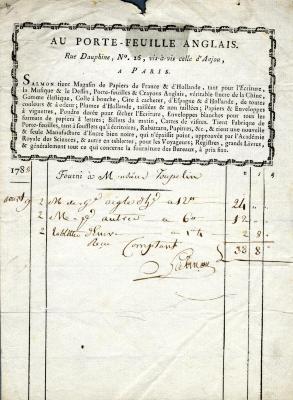 AU PORTE-FEUILLE ANGLAIS.
Rue Dauphine, N°. 26, vis-à-vis celle d'Anjou,
A PARIS.
SALMON tient Magasin de Papiers de France & d'Hollande, tant pour l'Ecriture,
la Musique & le Dessin, Porte-feuilles & Crayons Anglais, véritable Encre de la Chine,
Gomme élastique, Colle à bouche, Cire à cacheter, d'Espagne & d'Hollande, de toutes
couleurs & d'odeur; Plumes d'Hollande, taillées & non taillées; Papiers & Enveloppes
à vignettes, Poudre dorée pour sécher l'Ecriture, Enveloppes blanches pour tous les
formats de papiers à lettres; Billets du matin, Cartes de visites. Tient Fabrique de
Porte-feuilles, tant à soufflets qu'à écritoires, Rubatram, Papiros, &c., & tient une nouvelle
& seule Manufacture d'Encre bien noire, qui s'époudre, approuvée par l'Académie
Royale des Sciences, & autre en tablettes, pour les Voyageurs; Registres, grands Livres,
& généralement tout ce qui concerne la fourniture des Bureaux, à prix fixe.
178
Fourni à Monsieur
2 M de aigle à 12 24
2 M autre à 6 12
2 tablettes d'Encre 2 8
Reçu Comptant 38 8
Salmon